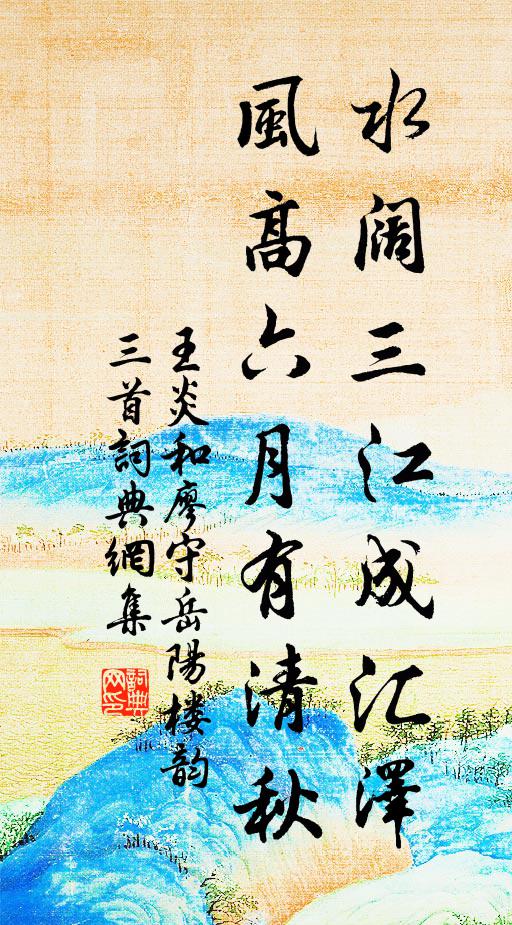 水阔三江成汇澤
風高六月有清秋
王炎和廖守岳陽楼韵
三首詞典網集
詞典网印